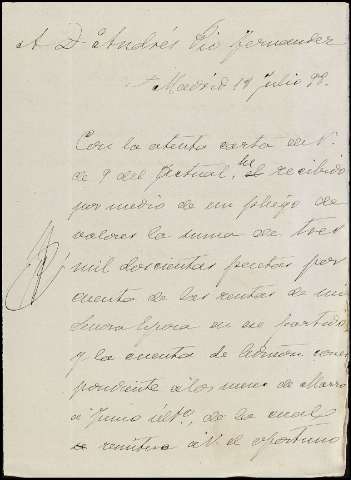 A Dn Andrés Pio Fernandez
Madrid 18 Julio 98.
Con la atenta carta de V.
de 9 del actual, he recibido
por medio de un pliego de
valores la suma de tres
mil doscientas pesetas por
cuenta de las rentas de mi
Señora Esposa en ese partido
y la cuenta de Admon corres
pondiente á los meses de Marzo
á Junio últo, de la cual
remitiré á V. el oportuno